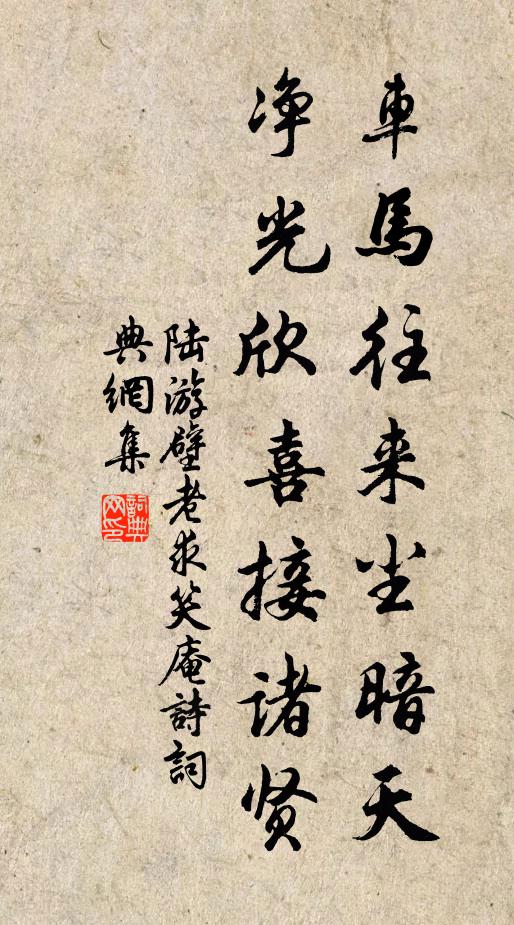 車馬往来尘暗天
净光欣喜接诸贤
陆游壁老求笑庵詩詞
典網集
詞典网印